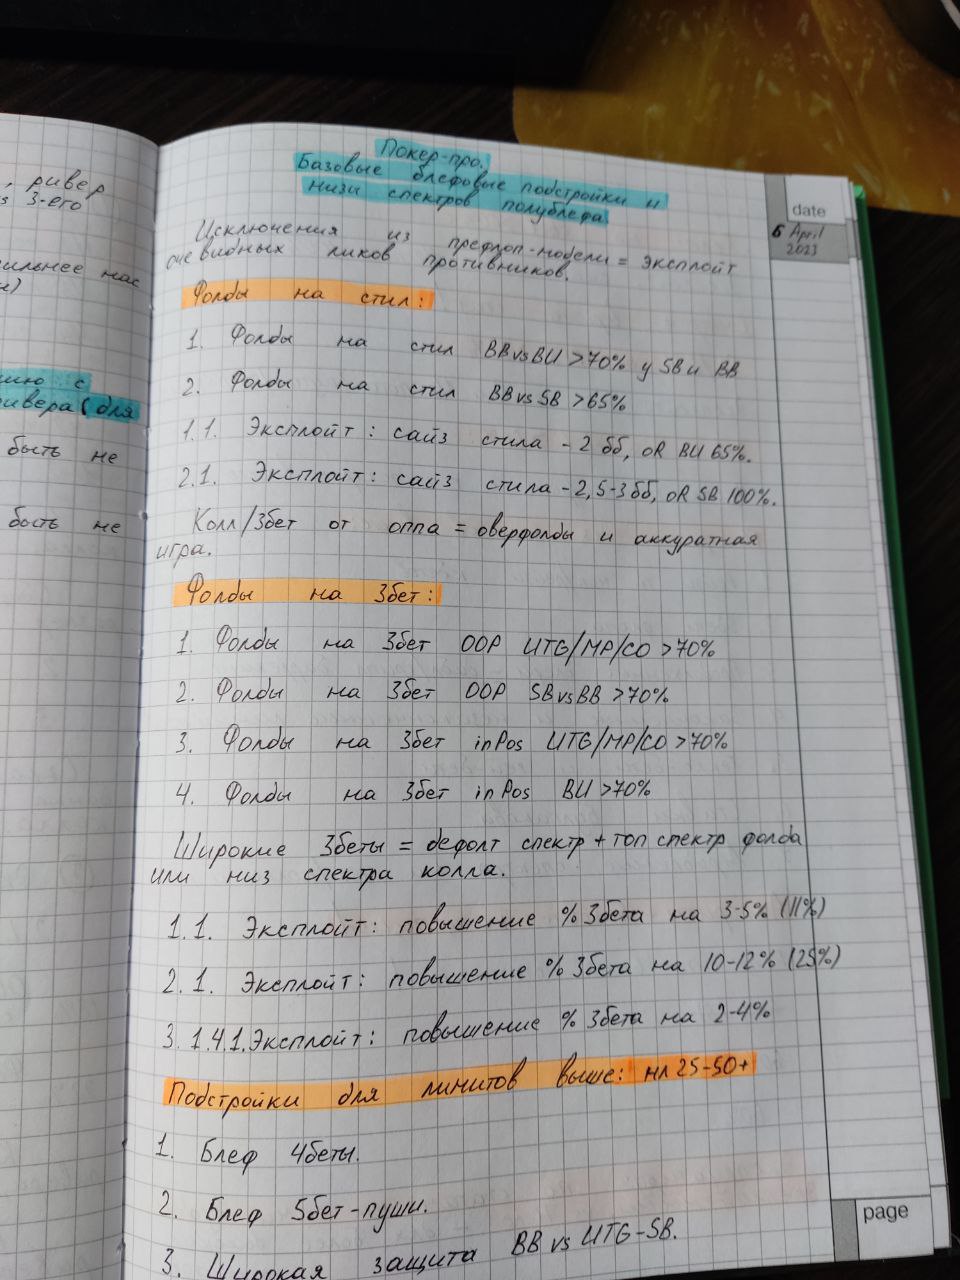 , ривер
3-его
нас
с
ривера (для
быть не
быть не
Покер-про.
Базовые блефовые подстройки и
низи спектров полублефа
date
6 April
2023
Исключения из префлоп-модели = эксплойт
очевидных ликов противников.
Фолды на стил:
1. Фолды на стил BBvsBU >70% у SB и BB
2. Фолды на стил BBvsSB >65%
1.1. Эксплойт: сайз стила - 2 бб, oR BU 65%.
2.1. Эксплойт: сайз стила - 2,5-3 бб, oR SB 100%.
Колл/3бет от оппа = оверфолды и аккуратная
игра.
Фолды на 3бет:
1. Фолды на 3бет OOP UTG/MP/CO >70%
2. Фолды на 3бет OOP SBvsBB >70%
3. Фолды на 3бет inPos UTG/MP/CO >70%
4. Фолды на 3бет inPos BU >70%
Широкие 3беты = дефолт спектр + топ спектр фолда
или низ спектра колла.
1.1. Эксплойт: повышение % 3бета на 3-5% (11%)
2.1. Эксплойт: повышение % 3бета на 10-12% (25%)
3.1.4.1. Эксплойт: повышение % 3бета на 2-4%
Подстройки для лимитов выше: нл 25-50+
1. Блеф 4беты.
2. Блеф 5бет-пуши.
3. Широкая защита BB vs UTG-SB.
page